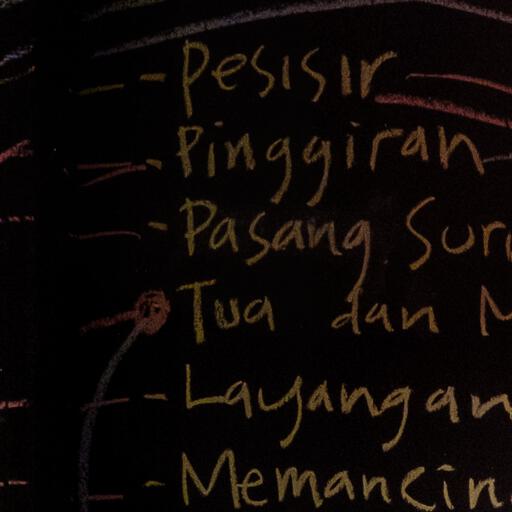 - Pesisir
- Pinggiran
- Pasang Suru
Tua dan M
- Layangan
- Memancin